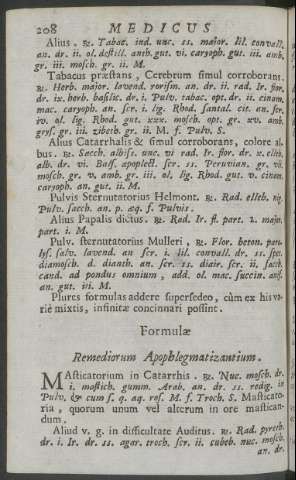 208 MEDICUS
Alius. ℞. Tabac. ind. unc. ss. major. lil. convall.
an. dr. ii. ol. destill. anth. gut. vi. caryoph. gut. iii. amb.
gr. iii. mosch. gr. ii. M.
Tabacus præstans, Cerebrum simul corroborans.
℞. Herb. major. lavend. rorism. an. dr. ii. rad. Ir. flor.
dr. iv. herb. basilic. dr. i. Pulv. tabac. opt. dr. ii. cinam.
mac. caryoph. an. scr. i. lig. Rhod. santal. cit. an. scr.
iv. ol. lig. Rhod. gut. xxx. mosch. opt. gr. xv. amb.
grys. gr. iii. zibeth. gr. ii. M. f. Pulv. S.
Alius Catarrhalis & simul corroborans, colore al-
bus. ℞. Sacch. albiss. unc. vi rad. Ir. flor. dr. x. elleb.
alb. dr. vi. Balf. apoplect. scr. ss. Peruvian. gr. vi.
mosch. gr. v. amb. gr. iii. ol. lig. Rhod. gut. v. cinam.
caryoph. an. gut. ii. M.
Pulvis Sternutatorius Helmont. ℞. Rad. elleb. nig.
Pulv. sacch. an. p. aq. f. Pulvis.
Alius Papalis dictus. ℞. Rad. Ir. fl. part. 2. major.
part. i. M.
Pulv. sternutatorius Mulleri, ℞. Flor. beton. pari-
lys. salv. lavend. an scr. i. lil. convall. dr. ss. spec.
diamosch. d. dianth. an. scr. ss. diair. scr. ii. sacch.
cand. ad pondus omnium, add. ol. mac. succin. anis.
an. gut. iii. M.
Plures formulas addere supersedeo, cùm ex his va-
riè mixtis, infinitæ concinnari possint.
Formulæ
Remediorum Apophlegmatizantium.
MAsticatorium in Catarrhis. ℞. Nuc. mosch. dr.
i. mastich. gumm. Arab. an. dr. ss. redig. in
Pulv. & cum s. q. aq. ros. M. f. Troch. S. Masticato-
ria, quorum unum vel alterum in ore mastican-
dum.
Aliud v. g. in difficultate Auditus. ℞. Rad. pyreth.
dr. i. Ir. dr. ss. agar. troch. scr. ii. cubeb. nuc. mosch.
an. dr.